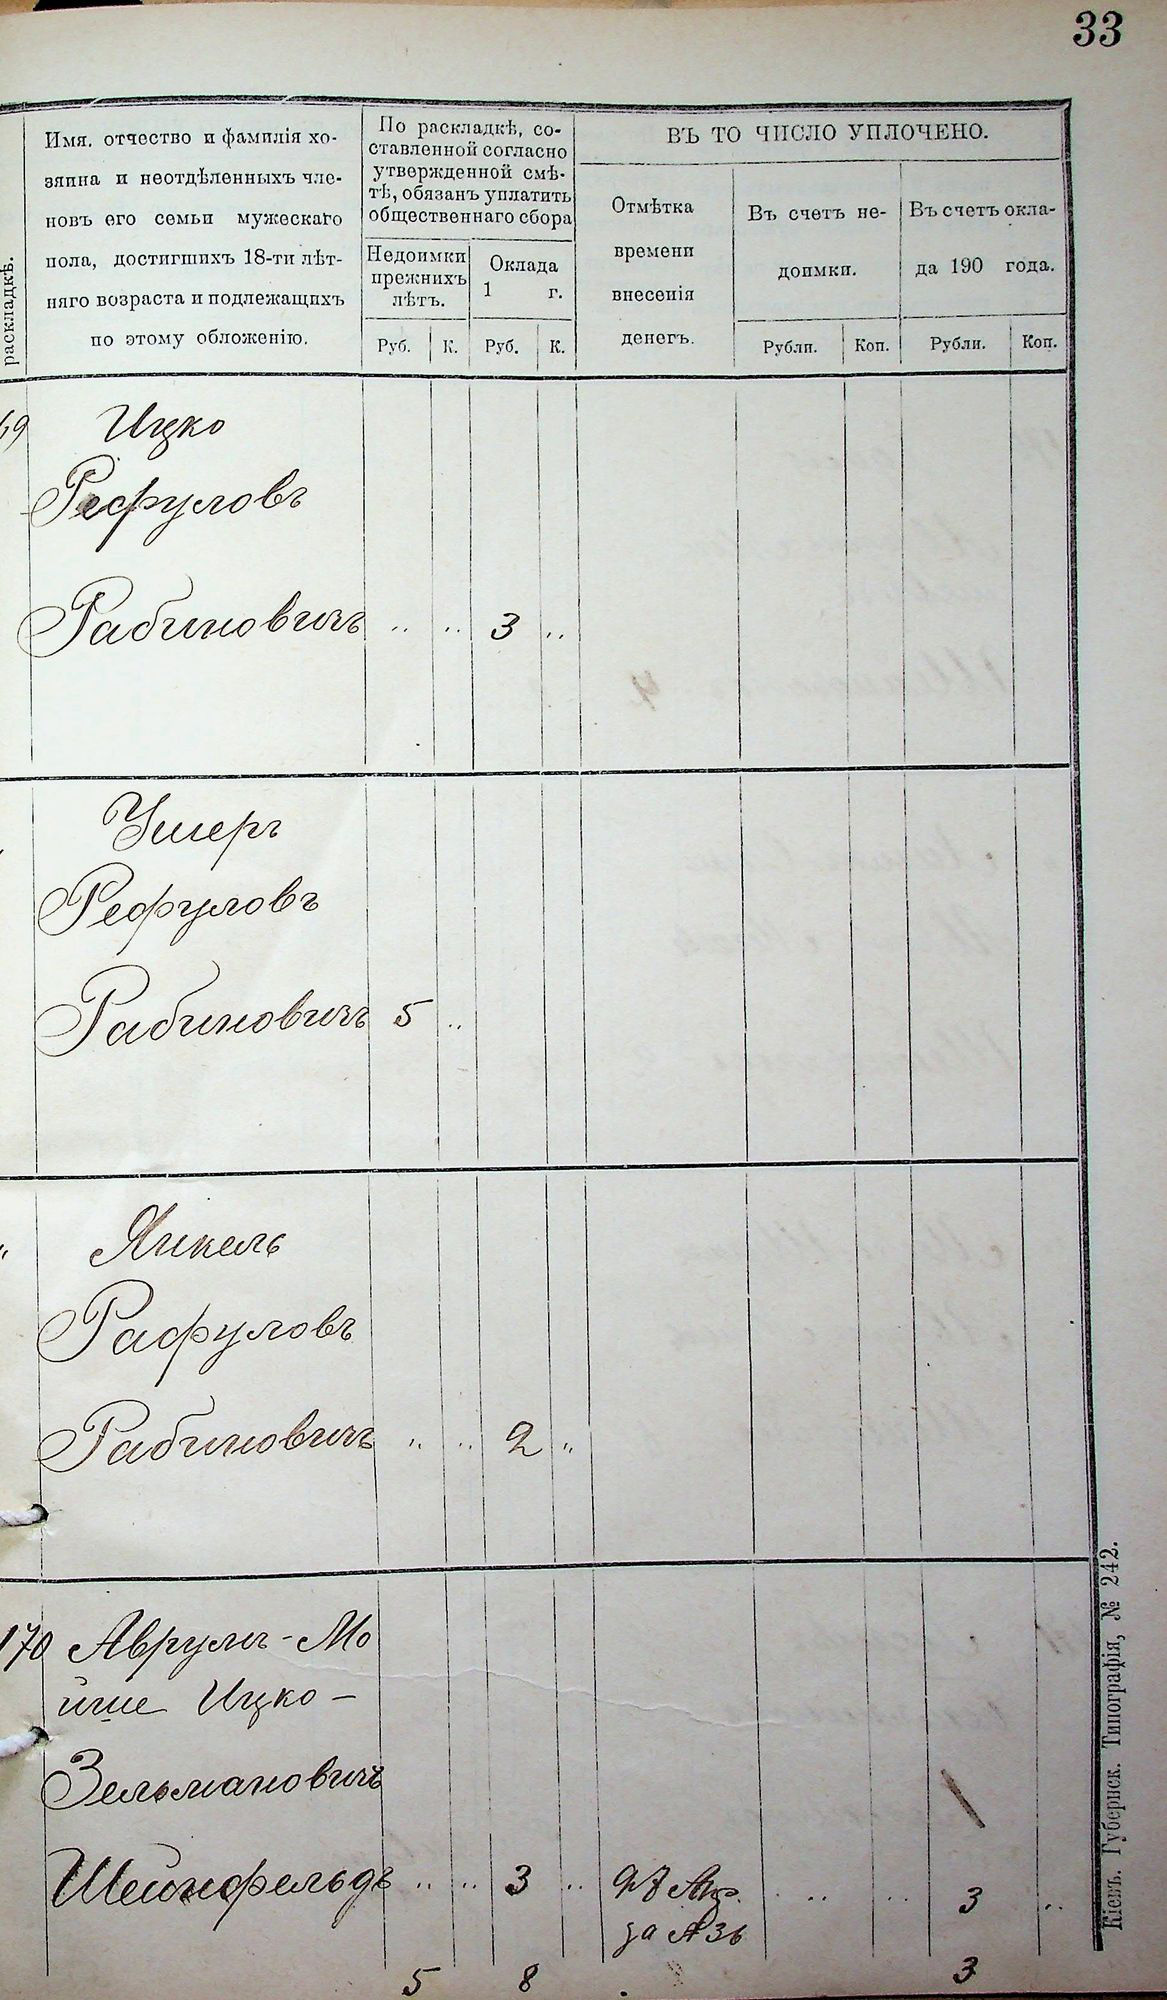 33
раскладкѣ.
Имя, отчество и фамилія хо-
зяина и неотдѣленныхъ чле-
новъ его семьи мужескаго
пола, достигшихъ 18-ти лѣт-
няго возраста и подлежащихъ
по этому обложенію.
По раскладкѣ, со-
ставленной согласно
утвержденной смѣ-
тѣ, обязанъ уплатить
общественнаго сбора
Недоимки
прежнихъ
лѣтъ.
Оклада
1 г.
Руб. К. Руб. К.
ВЪ ТО ЧИСЛО УПЛОЧЕНО.
Отмѣтка
времени
внесенія
денегъ.
Въ счетъ не-
доимки.
Рубли. Коп.
Въ счетъ окла-
да 190 года.
Рубли. Коп.
69 Ицко
Рефуловъ
Рабиновичъ " " 3 "
Ушеръ
Рефуловъ
Рабиновичъ 5 "
" Янкель
Рафуловъ
Рабиновичъ " " 2 "
170 Аврумъ-Мо
йше Ицко-
Зельмановичъ
Шейнфельдъ " " 3 " " " 3 "
5 8 3
Кіевъ. Губернск. Типографія, № 242.